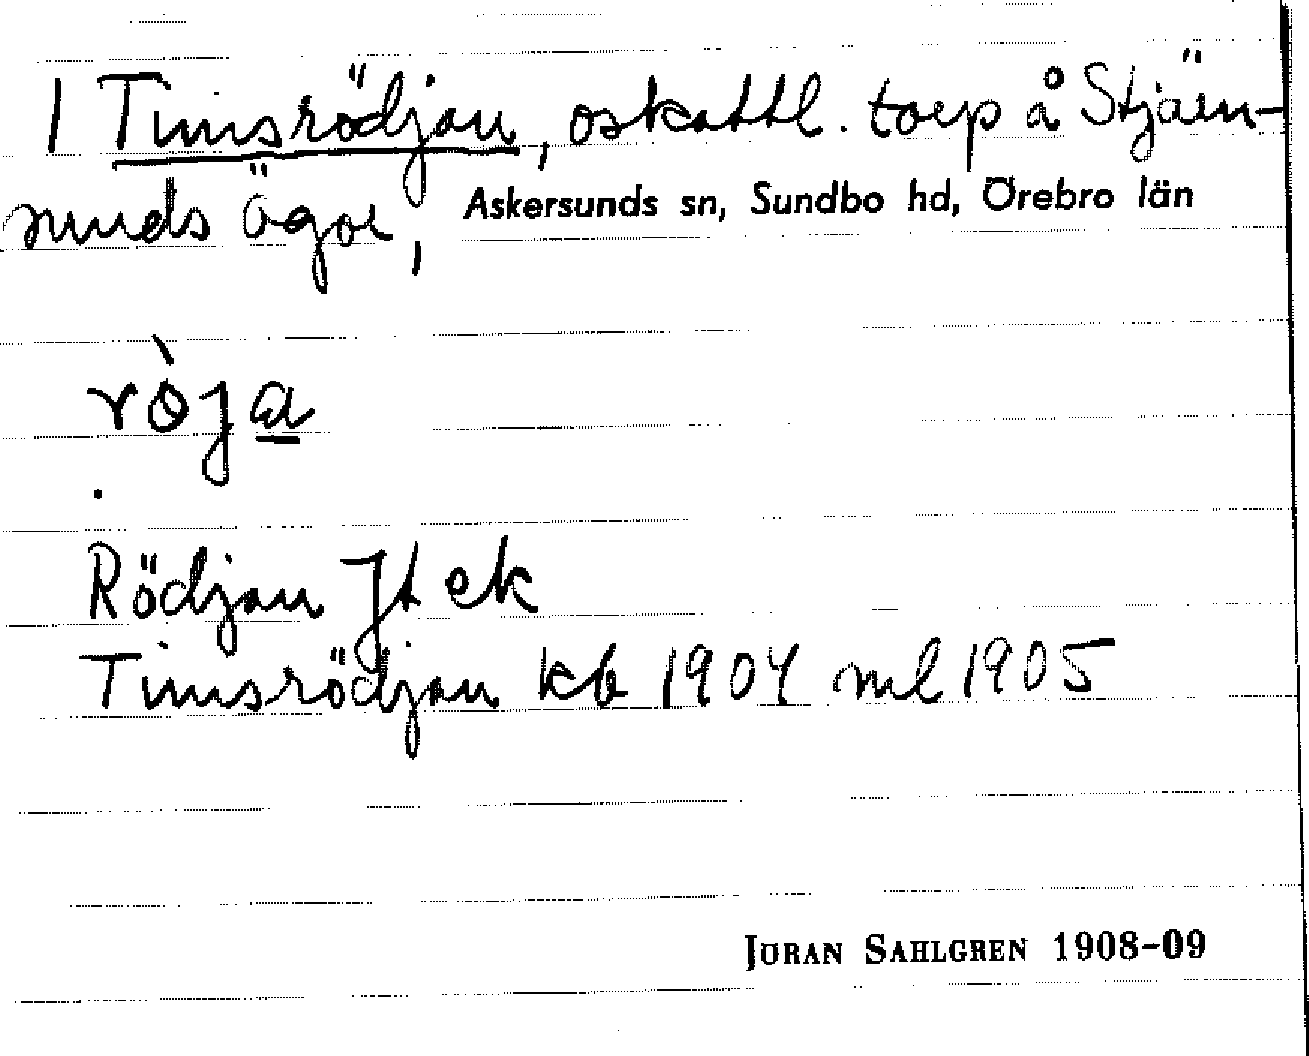 1 Timsrödjan, oskattl. torp å Stjärn-
sunds ägor, Askersunds sn, Sundbo hd, Örebro län
rö̀ja
.
Rödjan Jt ek
Timsrödjan kb 1904 ml 1905
JÖRAN SAHLGREN 1908-09